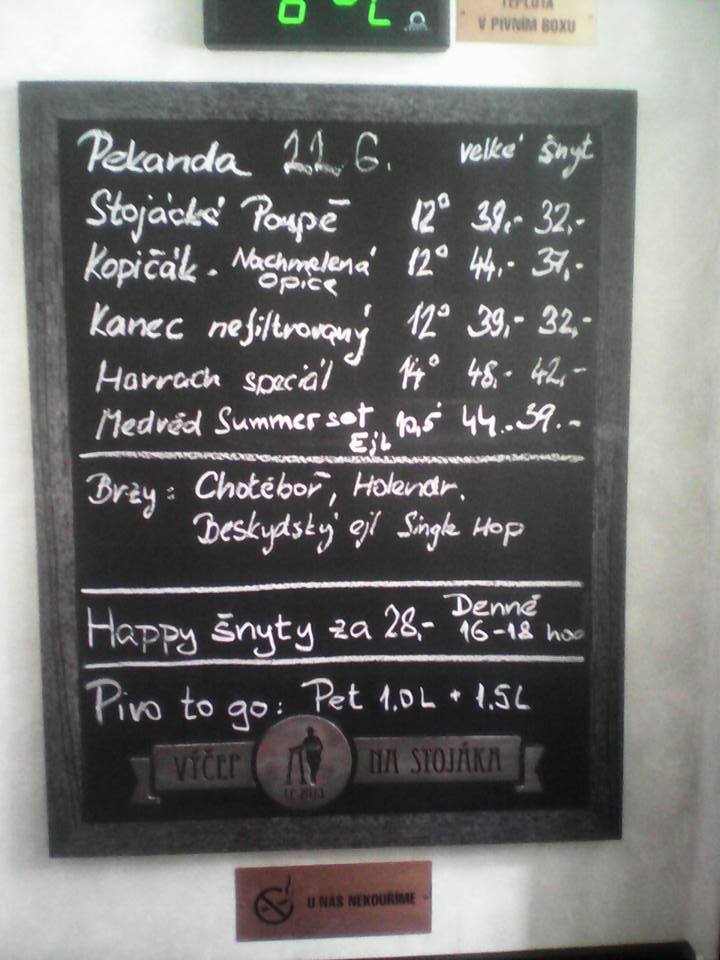 TEPLOTA
V PIVNÍM BOXU
Pekanda 22 6. velké šnyt
Stojácké Poupě 12° 39,- 32,-
Kopičák - Nachmelená 12° 44,- 37,-
Opice
Kanec nefiltrovaný 12° 39,- 32,-
Harrach speciál 14° 48,- 42,-
Medvěd Summer sot 10,5 44.- 39.-
Ejl
Brzy: Chotěboř, Holendr,
Beskydský ejl Single Hop
Happy šnyty za 28,- Denně
16-18 hod
Pivo to go: Pet 1.0L + 1.5L
VÝČEP NA STOJÁKA
U NÁS NEKOUŘÍME